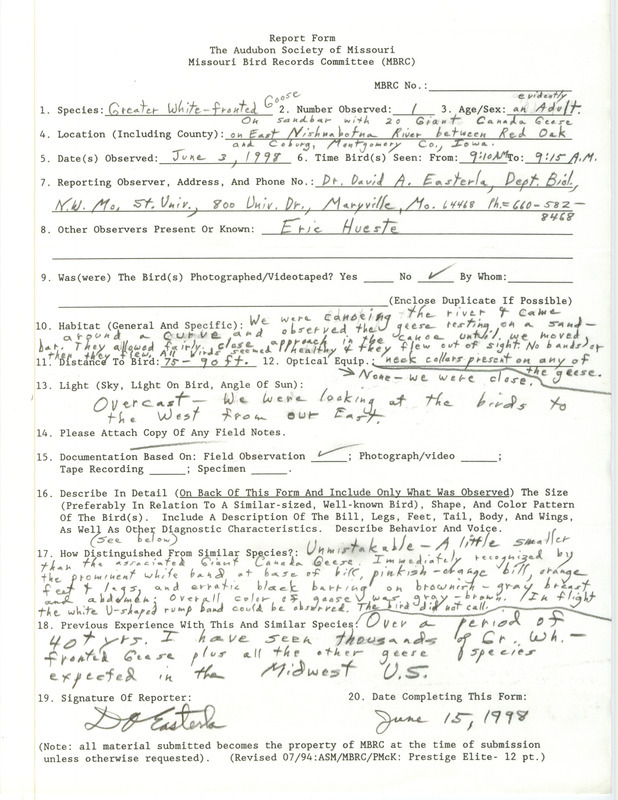 Report Form
The Audubon Society of Missouri
Missouri Bird Records Committee (MBRC)
MBRC No.:
1. Species: Greater White-fronted Goose 2. Number Observed: 1 3. Age/Sex: evidently an Adult.
On sandbar with 20 Giant Canada Geese
4. Location (Including County): on East Nishnabotna River between Red Oak
and Coburg, Montgomery Co., Iowa.
5. Date(s) Observed: June 3, 1998 6. Time Bird(s) Seen: From: 9:10AM To: 9:15 A.M.
7. Reporting Observer, Address, And Phone No.: Dr. David A. Easterla, Dept. Biol,
N.W. Mo. St. Univ., 800 Univ. Dr., Maryville, Mo. 64468 Ph.= 660-582-
8468
8. Other Observers Present Or Known: Eric Hueste
9. Was(were) The Bird(s) Photographed/Videotaped? Yes No ✓ By Whom:
(Enclose Duplicate If Possible)
10. Habitat (General And Specific): We were canoeing the river & came
around a curve and observed the geese resting on a sand-
bar. They allowed fairly close approach in the canoe until we moved,
then they flew. All birds seemed healthy & they flew out of sight. No bands or
11. Distance To Bird: 75 - 90 ft. 12. Optical Equip.: neck collars present on any of
the geese.
None - we were close.
13. Light (Sky, Light On Bird, Angle Of Sun):
Overcast - We were looking at the birds to
the West from our East.
14. Please Attach Copy Of Any Field Notes.
15. Documentation Based On: Field Observation ✓; Photograph/video ;
Tape Recording ; Specimen .
16. Describe In Detail (On Back Of This Form And Include Only What Was Observed) The Size
(Preferably In Relation To A Similar-sized, Well-known Bird), Shape, And Color Pattern
Of The Bird(s). Include A Description Of The Bill, Legs, Feet, Tail, Body, And Wings,
As Well As Other Diagnostic Characteristics. Describe Behavior And Voice.
(See below)
17. How Distinguished From Similar Species?: Unmistakable - A little smaller
than the associated Giant Canada Geese. Immediately recognized by
the prominent white band at base of bill, pinkish-orange bill, orange
feet & legs, and erratic black barring on brownish-gray breast
and abdomen; Overall color of goose was gray-brown. In flight
the white U-shaped rump band could be observed. The bird did not call.
18. Previous Experience With This And Similar Species: Over a period of
40+ yrs. I have seen thousands of Gr. Wh.-
fronted Geese plus all the other geese species
expected in the Midwest U.S.
19. Signature Of Reporter: 20. Date Completing This Form:
DA Easterla June 15, 1998
(Note: all material submitted becomes the property of MBRC at the time of submission
unless otherwise requested). (Revised 07/94:ASM/MBRC/PMcK: Prestige Elite- 12 pt.)